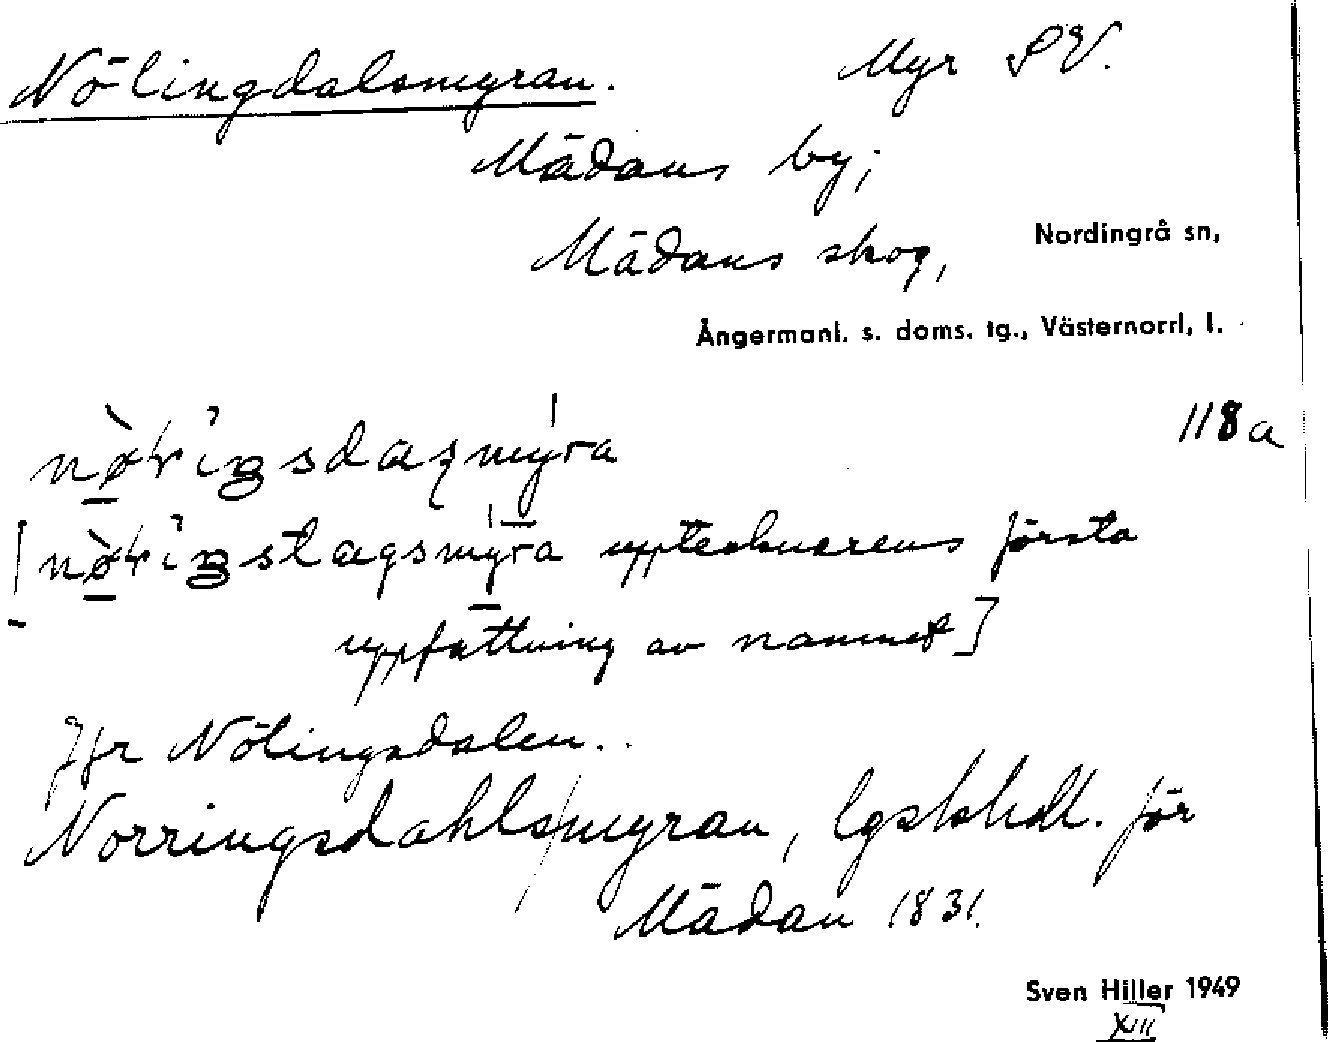 Nölingdalsmyran. Myr SV.
Mädans by;
Mädans skog, Nordingrå sn,
Ångermanl. s. doms. tg., Västernorrl, l.
118a
upptecknarens första
uppfattning av namnet]
Jfr Nölingsdalen.
Norringsdahls/myran, lgskhdl. för
Mädan 1831.
Sven Hiller 1949
XIII